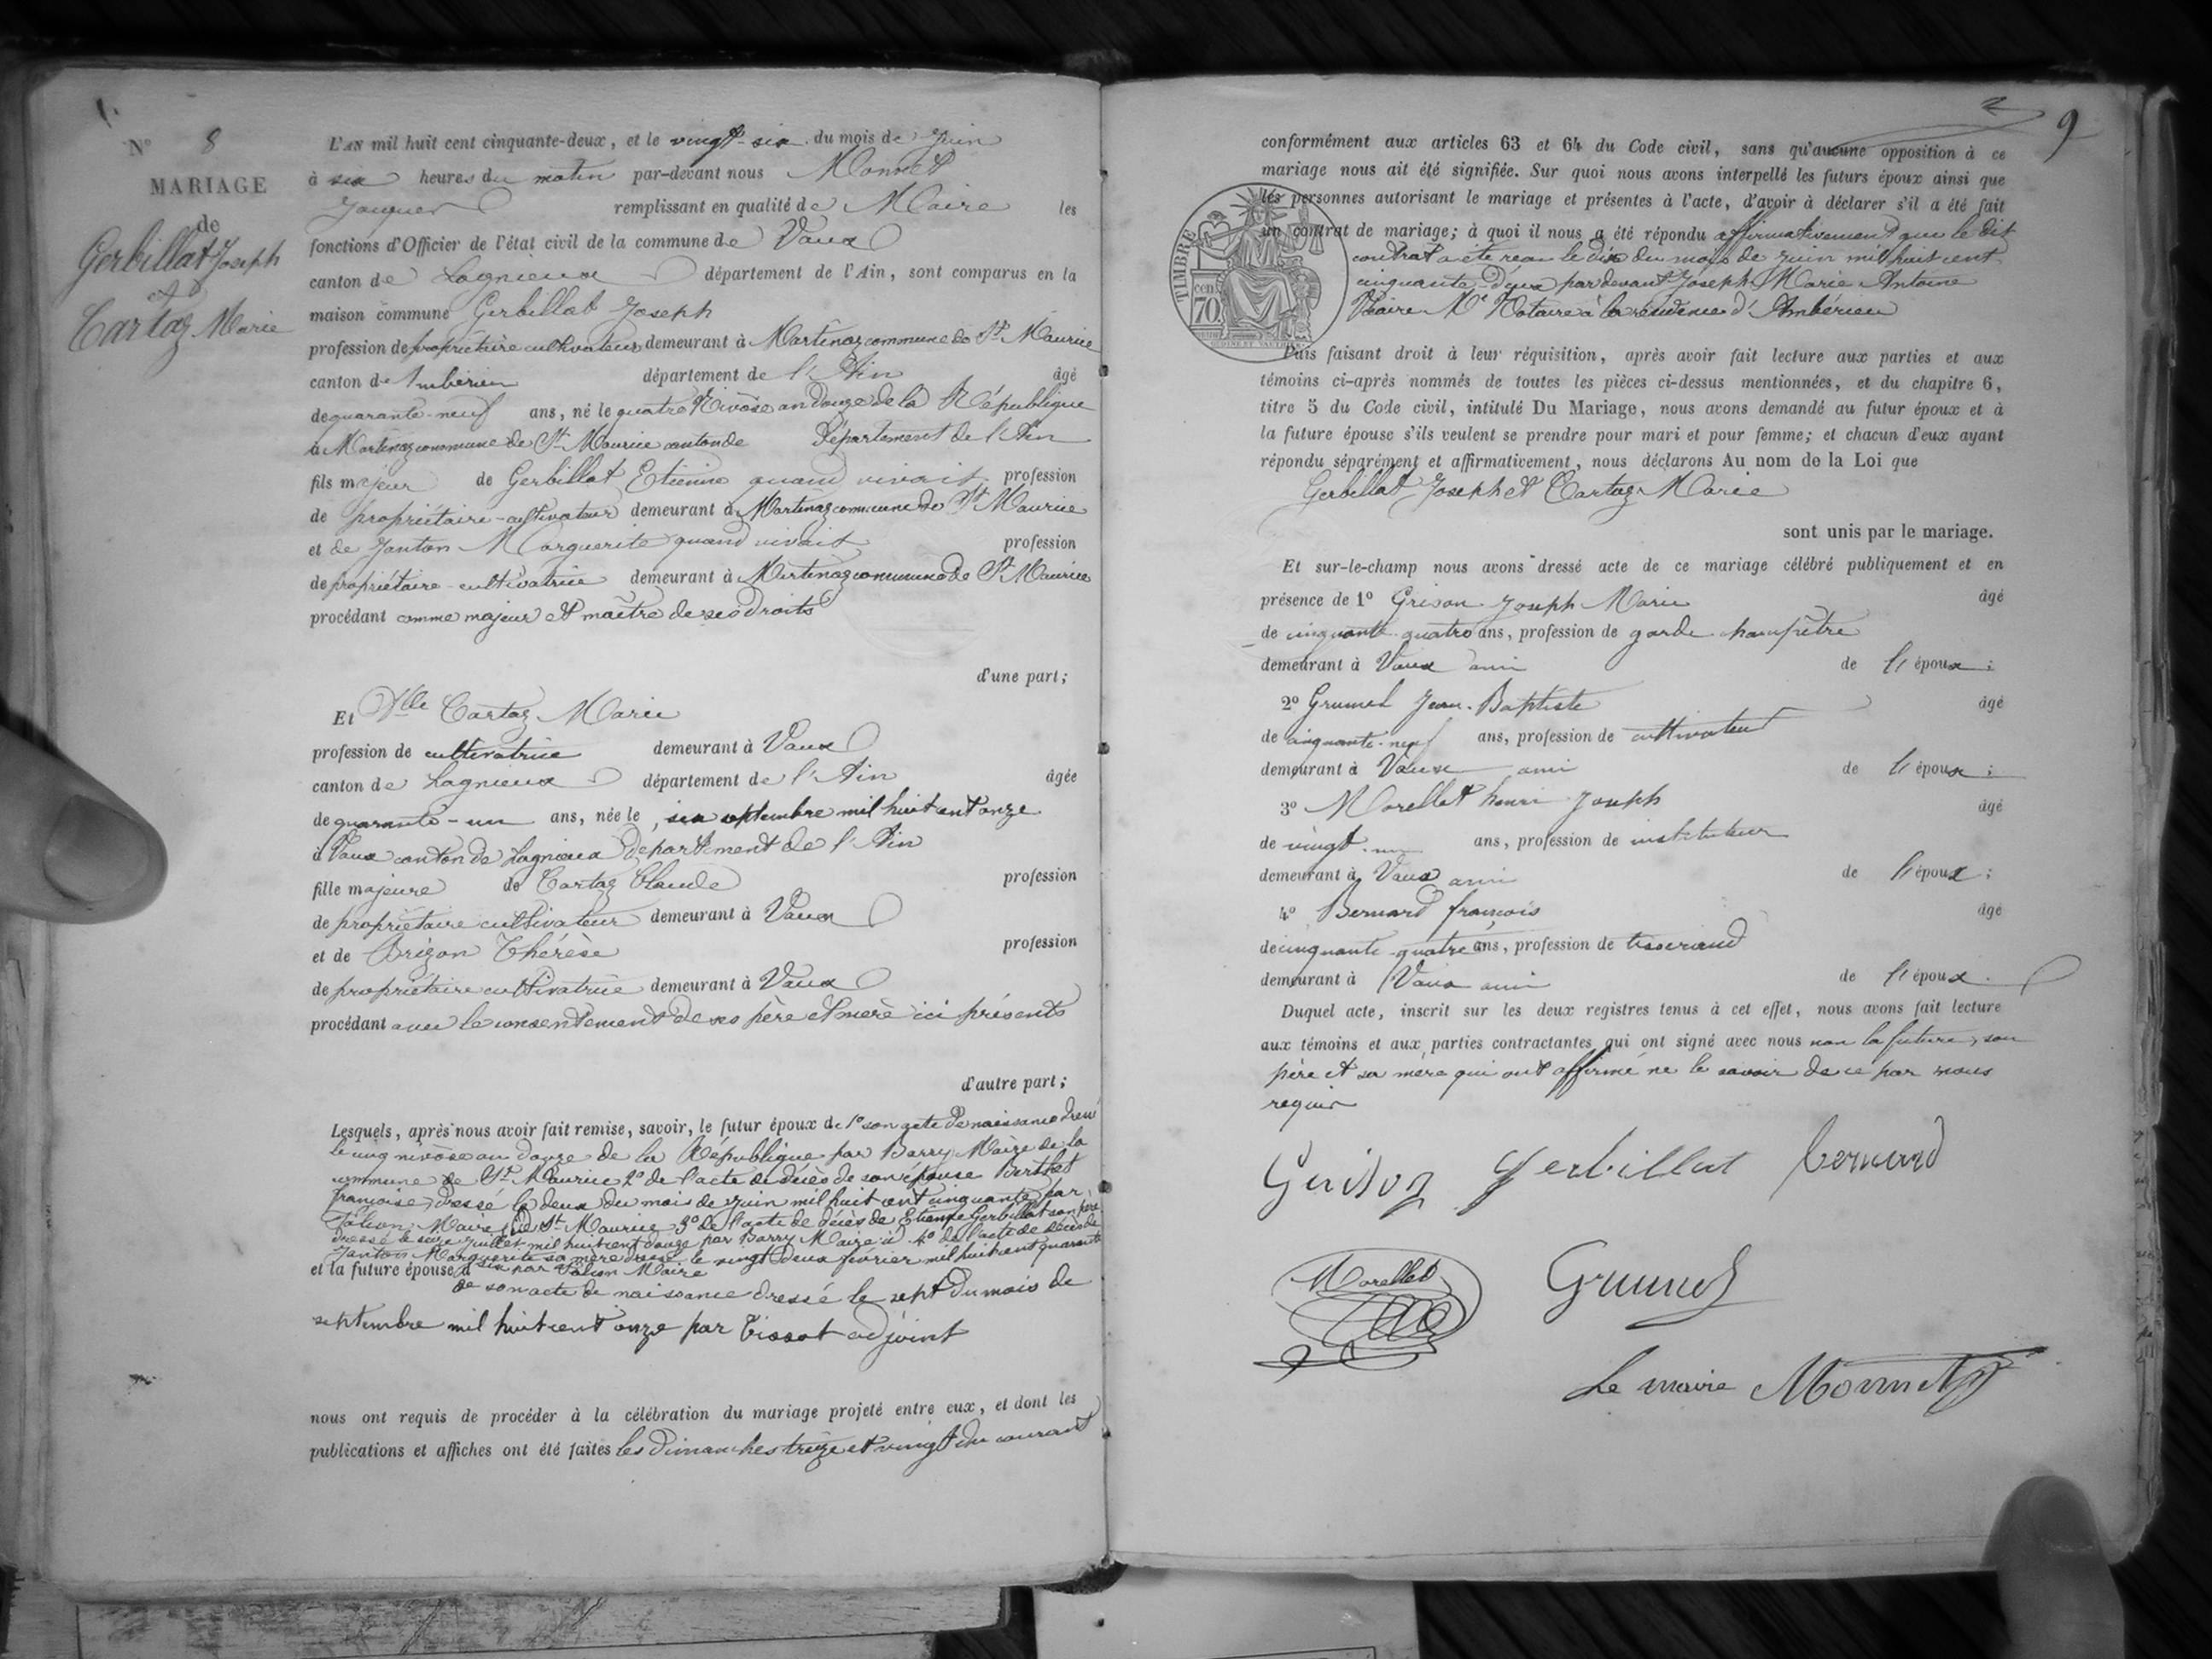 N° 8
MARIAGE
de
Gerbillat Joseph
et
Cartaz Marie
L'AN mil huit cent cinquante-deux, et le vingt-six du mois de Juin
à six heures du matin par-devant nous Monnet
Jacques remplissant en qualité de Maire les
fonctions d'Officier de l'état civil de la commune de Vaux
canton de Lagnieux département de l'Ain, sont comparus en la
maison commune Gerbillat Joseph
profession de propriétaire cultivateur demeurant à Martinaz commune de St Maurice
canton d'Ambérieu département de l'Ain âgé
de quarante-neuf ans, né le quatre Nivôse an douze de la République
à Martinaz commune de St Maurice canton de Département de l'Ain
fils majeur de Gerbillat Etienne quand vivait profession
de propriétaire-cultivateur demeurant à Martinaz commune de St Maurice
et de Janton Marguerite quand vivait profession
de propriétaire-cultivatrice demeurant à Martinaz commune de St Maurice
procédant comme majeur et maître de ses droits
d'une part;
Et Dlle Cartaz Marie
profession de cultivatrice demeurant à Vaux
canton de Lagnieux département de l'Ain âgée
de quarante-un ans, née le six septembre mil huit cent onze
à Vaux canton de Lagnieux département de l'Ain
fille majeure de Cartaz Claude profession
de propriétaire cultivateur demeurant à Vaux
et de Brizon Thérèse profession
de propriétaire cultivatrice demeurant à Vaux
procédant avec le consentement de ses père et mère ici présents
d'autre part;
Lesquels, après nous avoir fait remise, savoir, le futur époux de 1° son acte de naissance dressé
le cinq nivôse an douze de la République par Barry Maire de la
commune de St Maurice 2° de l'acte de décès de son épouse Berthet
françoise, dressé le deux du mois de juin mil huit cent cinquante par
Maire de St Maurice 3° de l'acte de décès de Etienne Gerbillat son père
dressé le seize juillet mil huit cent douze par Barry Maire 4° de l'acte de décès de
Janton Marguerite sa mère dressé le vingt deux février mil huit cent quarante
six par Maire
et la future épouse
de son acte de naissance dressé le sept du mois de
septembre mil huit cent onze par Tissot adjoint
nous ont requis de procéder à la célébration du mariage projeté entre eux, et dont les
publications et affiches ont été faites les dimanches treize et vingt du courant
9
conformément aux articles 63 et 64 du Code civil, sans qu'aucune opposition à ce
mariage nous ait été signifiée. Sur quoi nous avons interpellé les futurs époux ainsi que
les personnes autorisant le mariage et présentes à l'acte, d'avoir à déclarer s'il a été fait
un contrat de mariage; à quoi il nous a été répondu affirmativement que le dit
contrat a été reçu le dix du mois de juin mil huit cent
cinquante-deux par devant Joseph Marie Antoine
Me Notaire à la résidence d'Ambérieu
TIMBRE
70
Puis faisant droit à leur réquisition, après avoir fait lecture aux parties et aux
témoins ci-après nommés de toutes les pièces ci-dessus mentionnées, et du chapitre 6,
titre 5 du Code civil, intitulé Du Mariage, nous avons demandé au futur époux et à
la future épouse s'ils veulent se prendre pour mari et pour femme; et chacun d'eux ayant
répondu séparément et affirmativement, nous déclarons Au nom de la Loi que
Gerbillat Joseph et Cartaz Marie
sont unis par le mariage.
Et sur-le-champ nous avons dressé acte de ce mariage célébré publiquement et en
présence de 1° Grison Joseph Marie âgé
de cinquante-quatre ans, profession de garde champêtre
demeurant à Vaux ami de l'époux;
2° Grumel Jean-Baptiste âgé
de cinquante-neuf ans, profession de cultivateur
demeurant à Vaux ami de l'époux;
3° Morellet henri Joseph âgé
de vingt-un ans, profession de instituteur
demeurant à Vaux ami de l'époux;
4° Bernard françois âgé
de cinquante-quatre ans, profession de tisserand
demeurant à Vaux ami de l'époux.
Duquel acte, inscrit sur les deux registres tenus à cet effet, nous avons fait lecture
aux témoins et aux parties contractantes qui ont signé avec nous non la future, son
père et sa mère qui ont affirmé ne le savoir de ce par nous
requis
Grison Gerbillat bernard
Morellet Grumel
Le maire Monnet